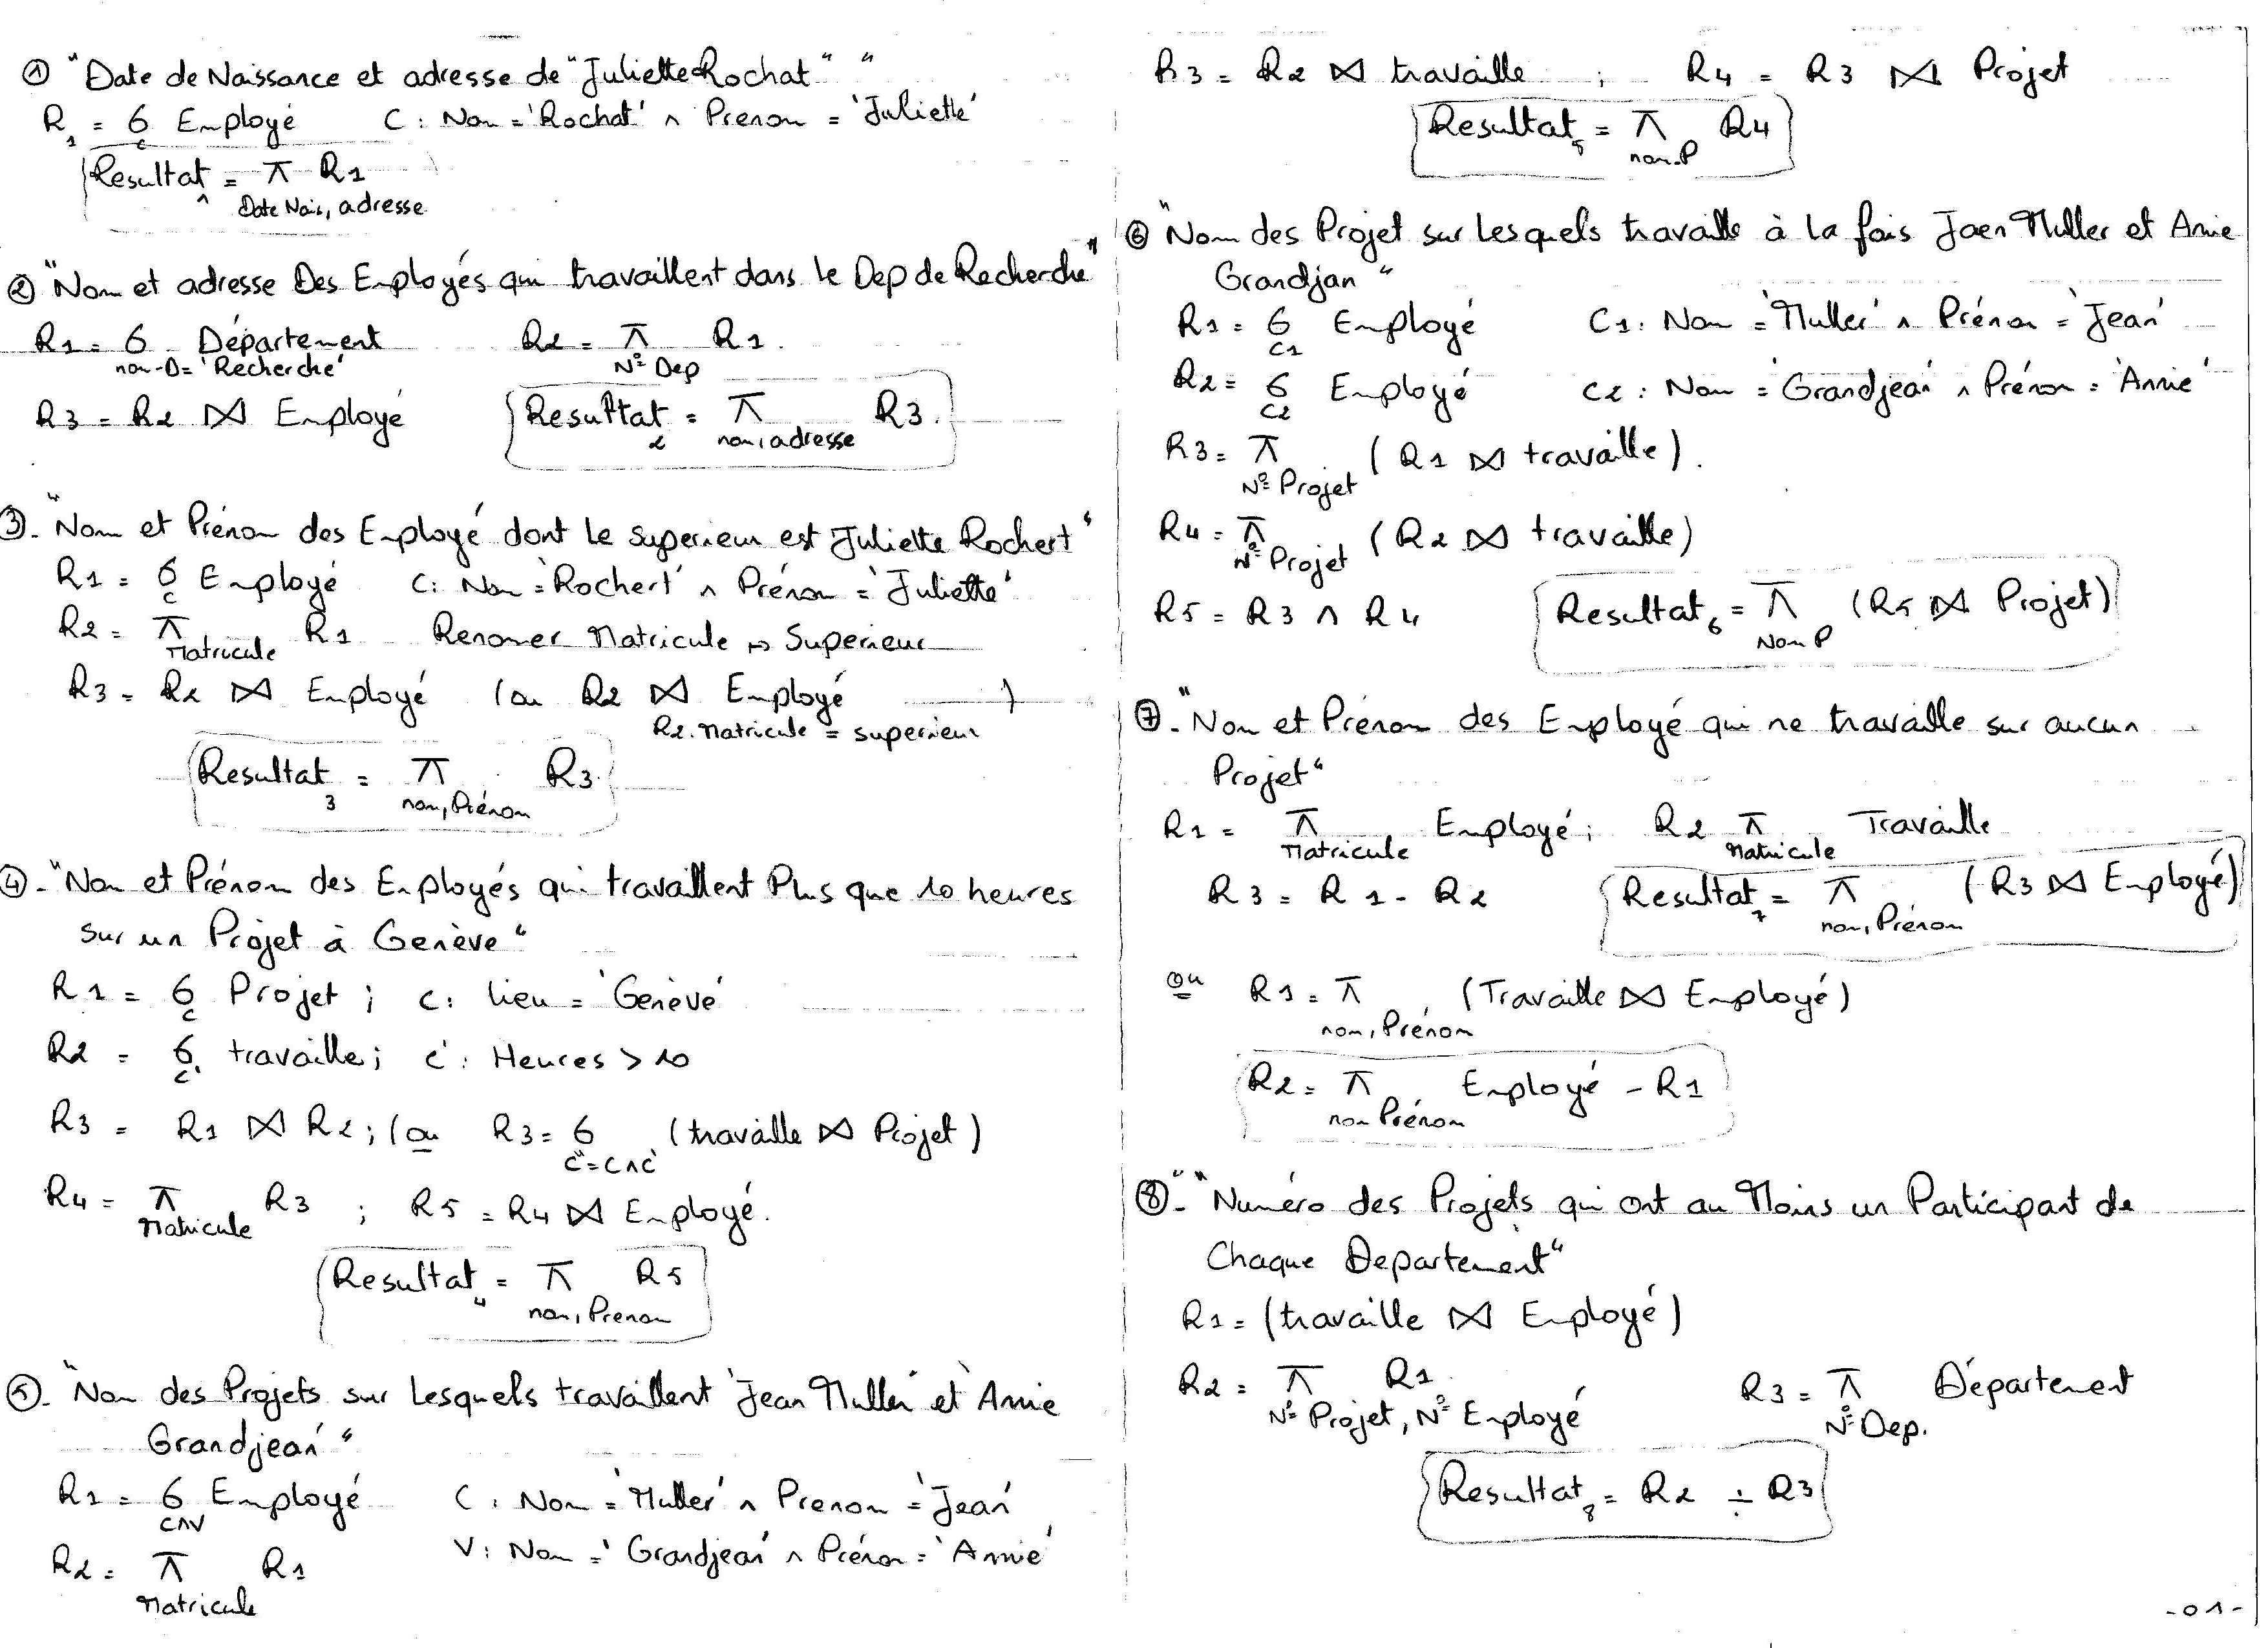 ① "Date de Naissance et adresse de "Juliette Rochat" "
R1 = σ_c Employé C : Nom = 'Rochat' ∧ Prenom = 'Juliette'
Resultat1 = π_{Date Nais, adresse} R1
② "Nom et adresse Des Employés qui travaillent dans le Dep de Recherche"
R1 = σ_{nom-D = 'Recherche'} Département R2 = π_{N° Dep} R1.
R3 = R2 ⋈ Employé Resultat2 = π_{nom, adresse} R3.
③- "Nom et Prénom des Employé dont le Superieur est Juliette Rochert"
R1 = σ_c Employé C: Nom = 'Rochert' ∧ Prénom = 'Juliette'
R2 = π_{Matricule} R1 Renomer Matricule ↦ Superieur
R3 = R2 ⋈ Employé (ou R2 ⋈_{R2.Matricule = superieur} Employé )
Resultat3 = π_{nom, Prénom} R3
④- "Nom et Prénom des Employés qui travaillent Plus que 10 heures
sur un Projet à Genève"
R1 = σ_c Projet ; C: lieu = 'Genève'
R2 = σ_c' travaille ; c' : Heures > 10
R3 = R1 ⋈ R2 ; (ou R3 = σ_{c"=c∧c'} (travaille ⋈ Projet)
R4 = π_{Matricule} R3 ; R5 = R4 ⋈ Employé.
Resultat4 = π_{nom, Prenom} R5
⑤- "Nom des Projets sur Lesquels travaillent 'Jean Muller' et 'Annie
Grandjean' "
R1 = σ_{C∧V} Employé C : Nom = 'Muller' ∧ Prenom = 'Jean'
V : Nom = 'Grandjean' ∧ Prénom = 'Annie'
R2 = π_{Matricule} R1
R3 = R2 ⋈ travaille ; R4 = R3 ⋈ Projet
Resultat5 = π_{nom-P} R4
⑥ "Nom des Projet sur Lesquels travaille à la fois Jaen Muller et Annie
Grandjan"
R1 = σ_{C1} Employé C1 : Nom = 'Muller' ∧ Prénom = 'Jean'
R2 = σ_{C2} Employé C2 : Nom = 'Grandjean' ∧ Prénom = 'Annie'
R3 = π_{N° Projet} (R1 ⋈ travaille).
R4 = π_{N° Projet} (R2 ⋈ travaille)
R5 = R3 ∩ R4 Resultat6 = π_{Nom P} (R5 ⋈ Projet)
⑦- "Nom et Prénom des Employé qui ne travaille sur aucun
Projet"
R1 = π_{Matricule} Employé ; R2 π_{Matricule} Travaille
R3 = R1 - R2 Resultat7 = π_{nom, Prénom} (R3 ⋈ Employé)
ou R1 = π_{nom, Prénom} (Travaille ⋈ Employé)
R2 = π_{nom Prénom} Employé - R1
⑧- "Numéro des Projets qui ont au Moins un Participant de
Chaque Departement"
R1 = (travaille ⋈ Employé)
R2 = π_{N° Projet, N° Employé} R1 R3 = π_{N° Dep.} Département
Resultat8 = R2 ÷ R3
- 01 -